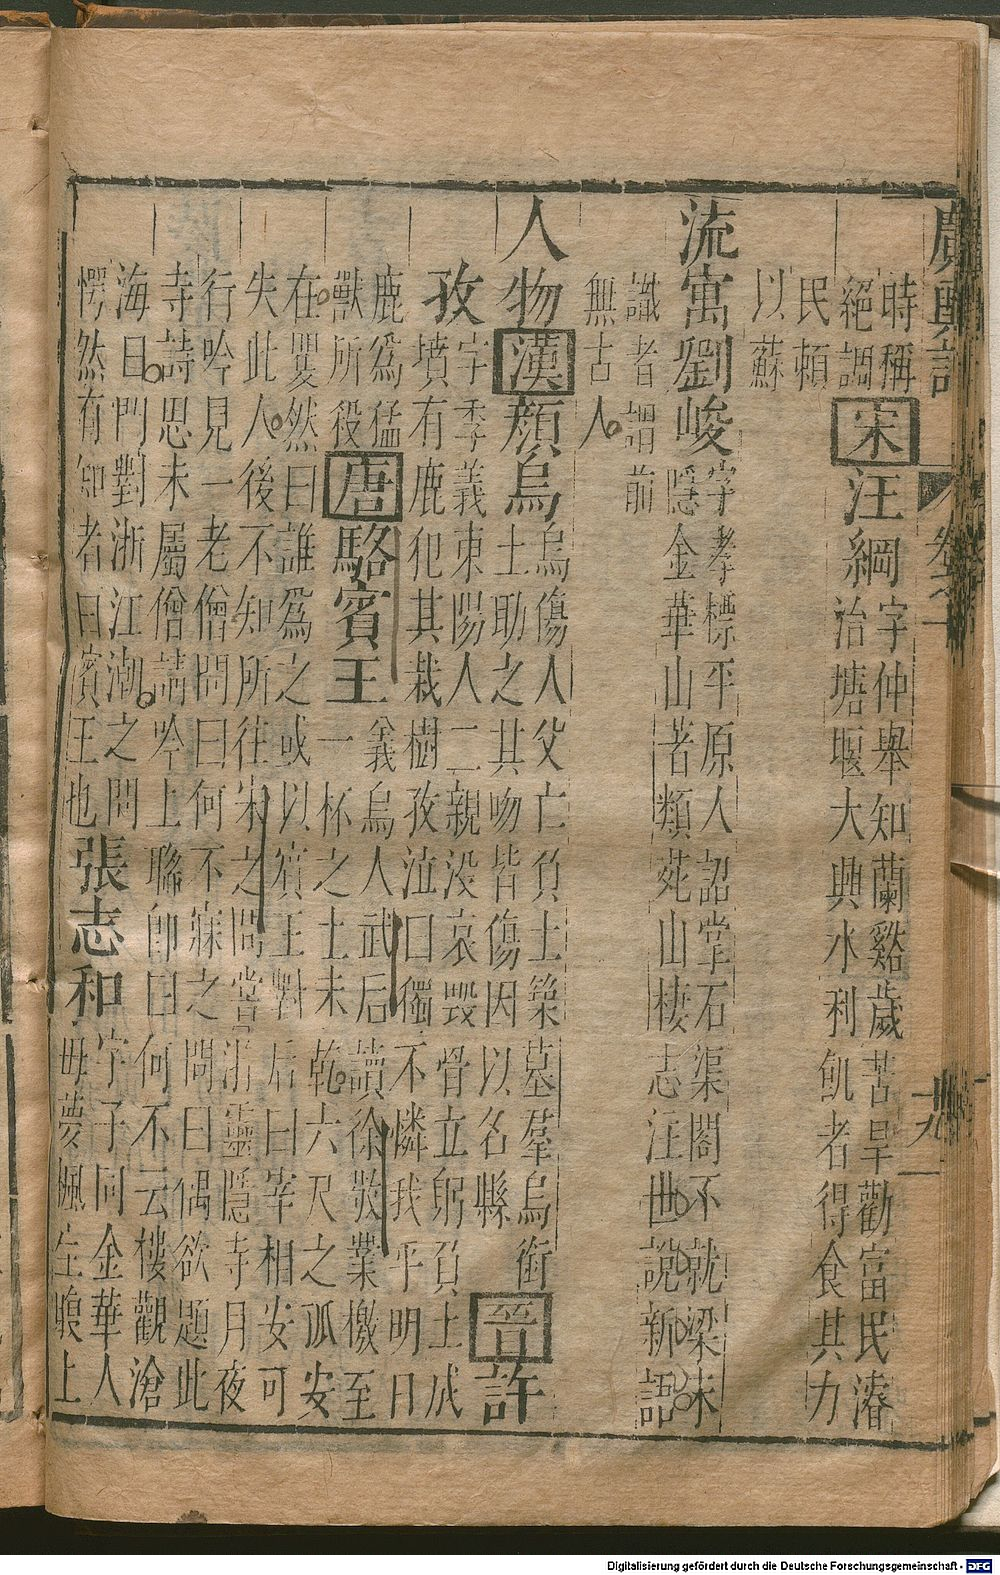 廣輿記 十九
時稱
絕調
宋汪綱
字仲舉知蘭谿歲苦旱勸富民濬
治塘堰大興水利飢者得食其力
民賴
以蘇
流寓劉峻
字孝標平原人詔掌石渠閣不就梁末
隱金華山著類苑山棲志注世說新語
識者謂前
無古人
人物漢顏烏
烏傷人父亡負土築墓羣烏銜
土助之其吻皆傷因以名縣
晉許
孜
字季義東陽人二親没哀毀骨立躬負土成
墳有鹿犯其栽樹孜泣曰獨不憐我乎明日
鹿爲猛
獸所役
唐駱賓王
義烏人武后讀徐敬業檄至
一杯之土未乾六尺之孤安
在矍然曰誰爲之或以賓王對后曰宰相安可
失此人後不知所往宋之問嘗游靈隱寺月夜
行吟見一老僧問曰何不寐之問曰偶欲題此
寺詩思未屬僧請吟上聯即曰何不云樓觀滄
海日門對浙江潮之問
愕然有知者曰賓王也
張志和
字子同金華人
母夢楓生腹上
Digitalisierung gefördert durch die Deutsche Forschungsgemeinschaft - DFG